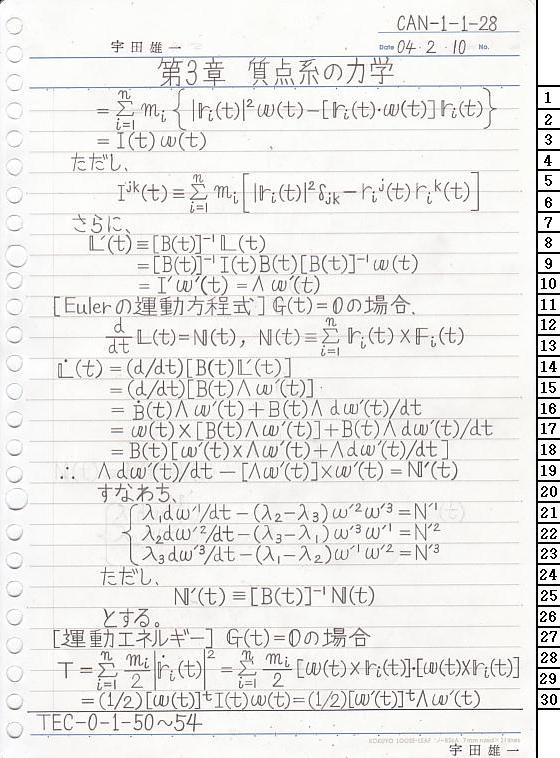 CAN-1-1-28
宇田雄一
Date 04・2・10 No.
第3章 質点系の力学
= Σ_{i=1}^{n} m_i { |𝕣_i(t)|² ω(t) − [𝕣_i(t)・ω(t)] 𝕣_i(t) }
= I(t) ω(t)
ただし、
I^{jk}(t) ≡ Σ_{i=1}^{n} m_i [ |𝕣_i(t)|² δ_{jk} − r_i^j(t) r_i^k(t) ]
さらに、
𝕃′(t) ≡ [B(t)]⁻¹ 𝕃(t)
= [B(t)]⁻¹ I(t) B(t) [B(t)]⁻¹ ω(t)
= I′ω′(t) = Λω′(t)
[Eulerの運動方程式] 𝔾(t)=𝟘の場合、
d/dt 𝕃(t) = ℕ(t), ℕ(t) ≡ Σ_{i=1}^{n} 𝕣_i(t) × 𝔽_i(t)
𝕃̇(t) = (d/dt)[B(t)𝕃′(t)]
= (d/dt)[B(t)Λω′(t)]
= Ḃ(t)Λω′(t) + B(t)Λdω′(t)/dt
= ω(t)×[B(t)Λω′(t)] + B(t)Λdω′(t)/dt
= B(t)[ω′(t)×Λω′(t) + Λdω′(t)/dt]
∴ Λdω′(t)/dt − [Λω′(t)]×ω′(t) = ℕ′(t)
すなわち、
λ₁dω′¹/dt − (λ₂−λ₃)ω′²ω′³ = N′¹
λ₂dω′²/dt − (λ₃−λ₁)ω′³ω′¹ = N′²
λ₃dω′³/dt − (λ₁−λ₂)ω′¹ω′² = N′³
ただし、
ℕ′(t) ≡ [B(t)]⁻¹ ℕ(t)
とする。
[運動エネルギー] 𝔾(t)=𝟘の場合
T = Σ_{i=1}^{n} m_i/2 |𝕣̇_i(t)|² = Σ_{i=1}^{n} m_i/2 [ω(t)×𝕣_i(t)]・[ω(t)×𝕣_i(t)]
= (1/2)[ω(t)]ᵗI(t)ω(t) = (1/2)[ω′(t)]ᵗΛω′(t)
TEC-0-1-50〜54
宇田雄一
1
2
3
4
5
6
7
8
9
10
11
12
13
14
15
16
17
18
19
20
21
22
23
24
25
26
27
28
29
30